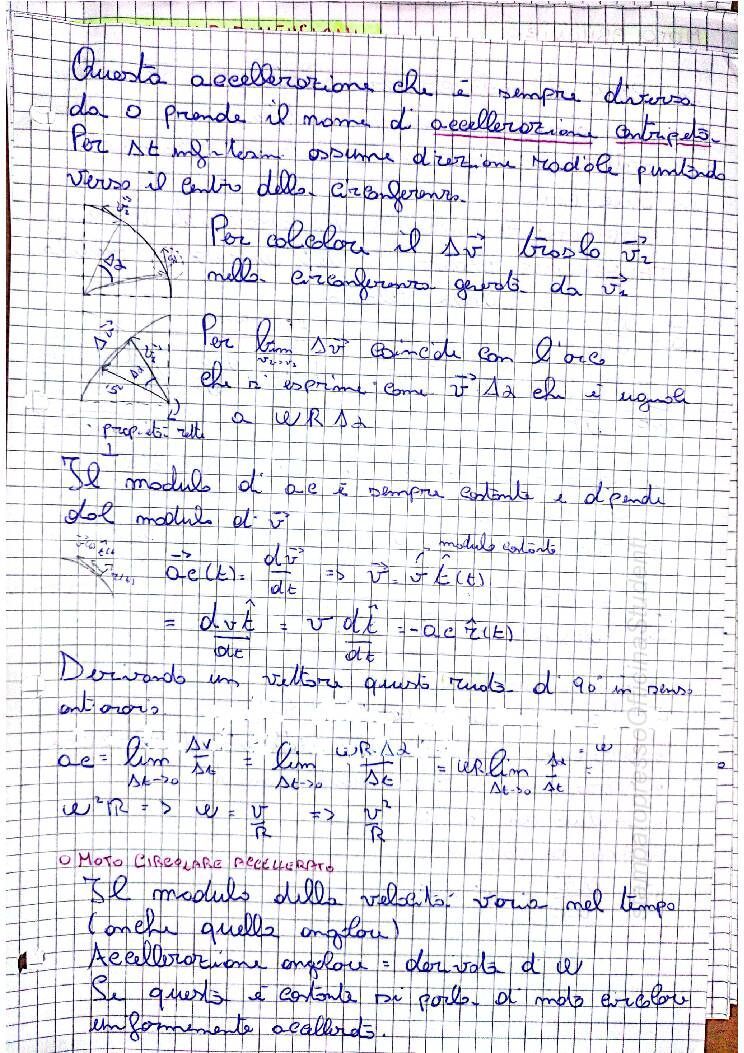 Questa accellerazione che è sempre diversa
da 0 prende il nome di accellerazione centripeta.
Per Δt infinitesimi assume direzione radiale puntando
verso il centro della circonferenza.
v⃗₂
Δα
Per calcolare il Δv⃗ traslo v⃗₂
nella circonferenza generata da v⃗₂
Δv⃗
v⃗₂
Δα
Per lim Δv⃗ coincide con l'arco
che si esprime come v⃗ Δα che è uguale
a ωRΔα
propietà rette
⊥
Il modulo di ac è sempre costante e dipende
dal modulo di v⃗
modulo costante
a⃗c(t) = dv⃗/dt => v⃗ = v t̂(t)
= dv t̂/dt = v dt̂/dt = -ac r̂(t)
Derivando un vettore questo ruota di 90° in senso
antiorario
ac = lim Δt->0 Δv/Δt = lim Δt->0 ωR·Δα/Δt = ωR lim Δt->0 Δα/Δt = ω =
ω²R => ω = v/R => v²/R
○ MOTO CIRCOLARE ACCELLERATO
Il modulo della velocità varia nel tempo
(anche quella angolare)
Accellerazione angolare = derivata di ω
Se questa è costante si parla di moto circolare
uniformemente accellerato.